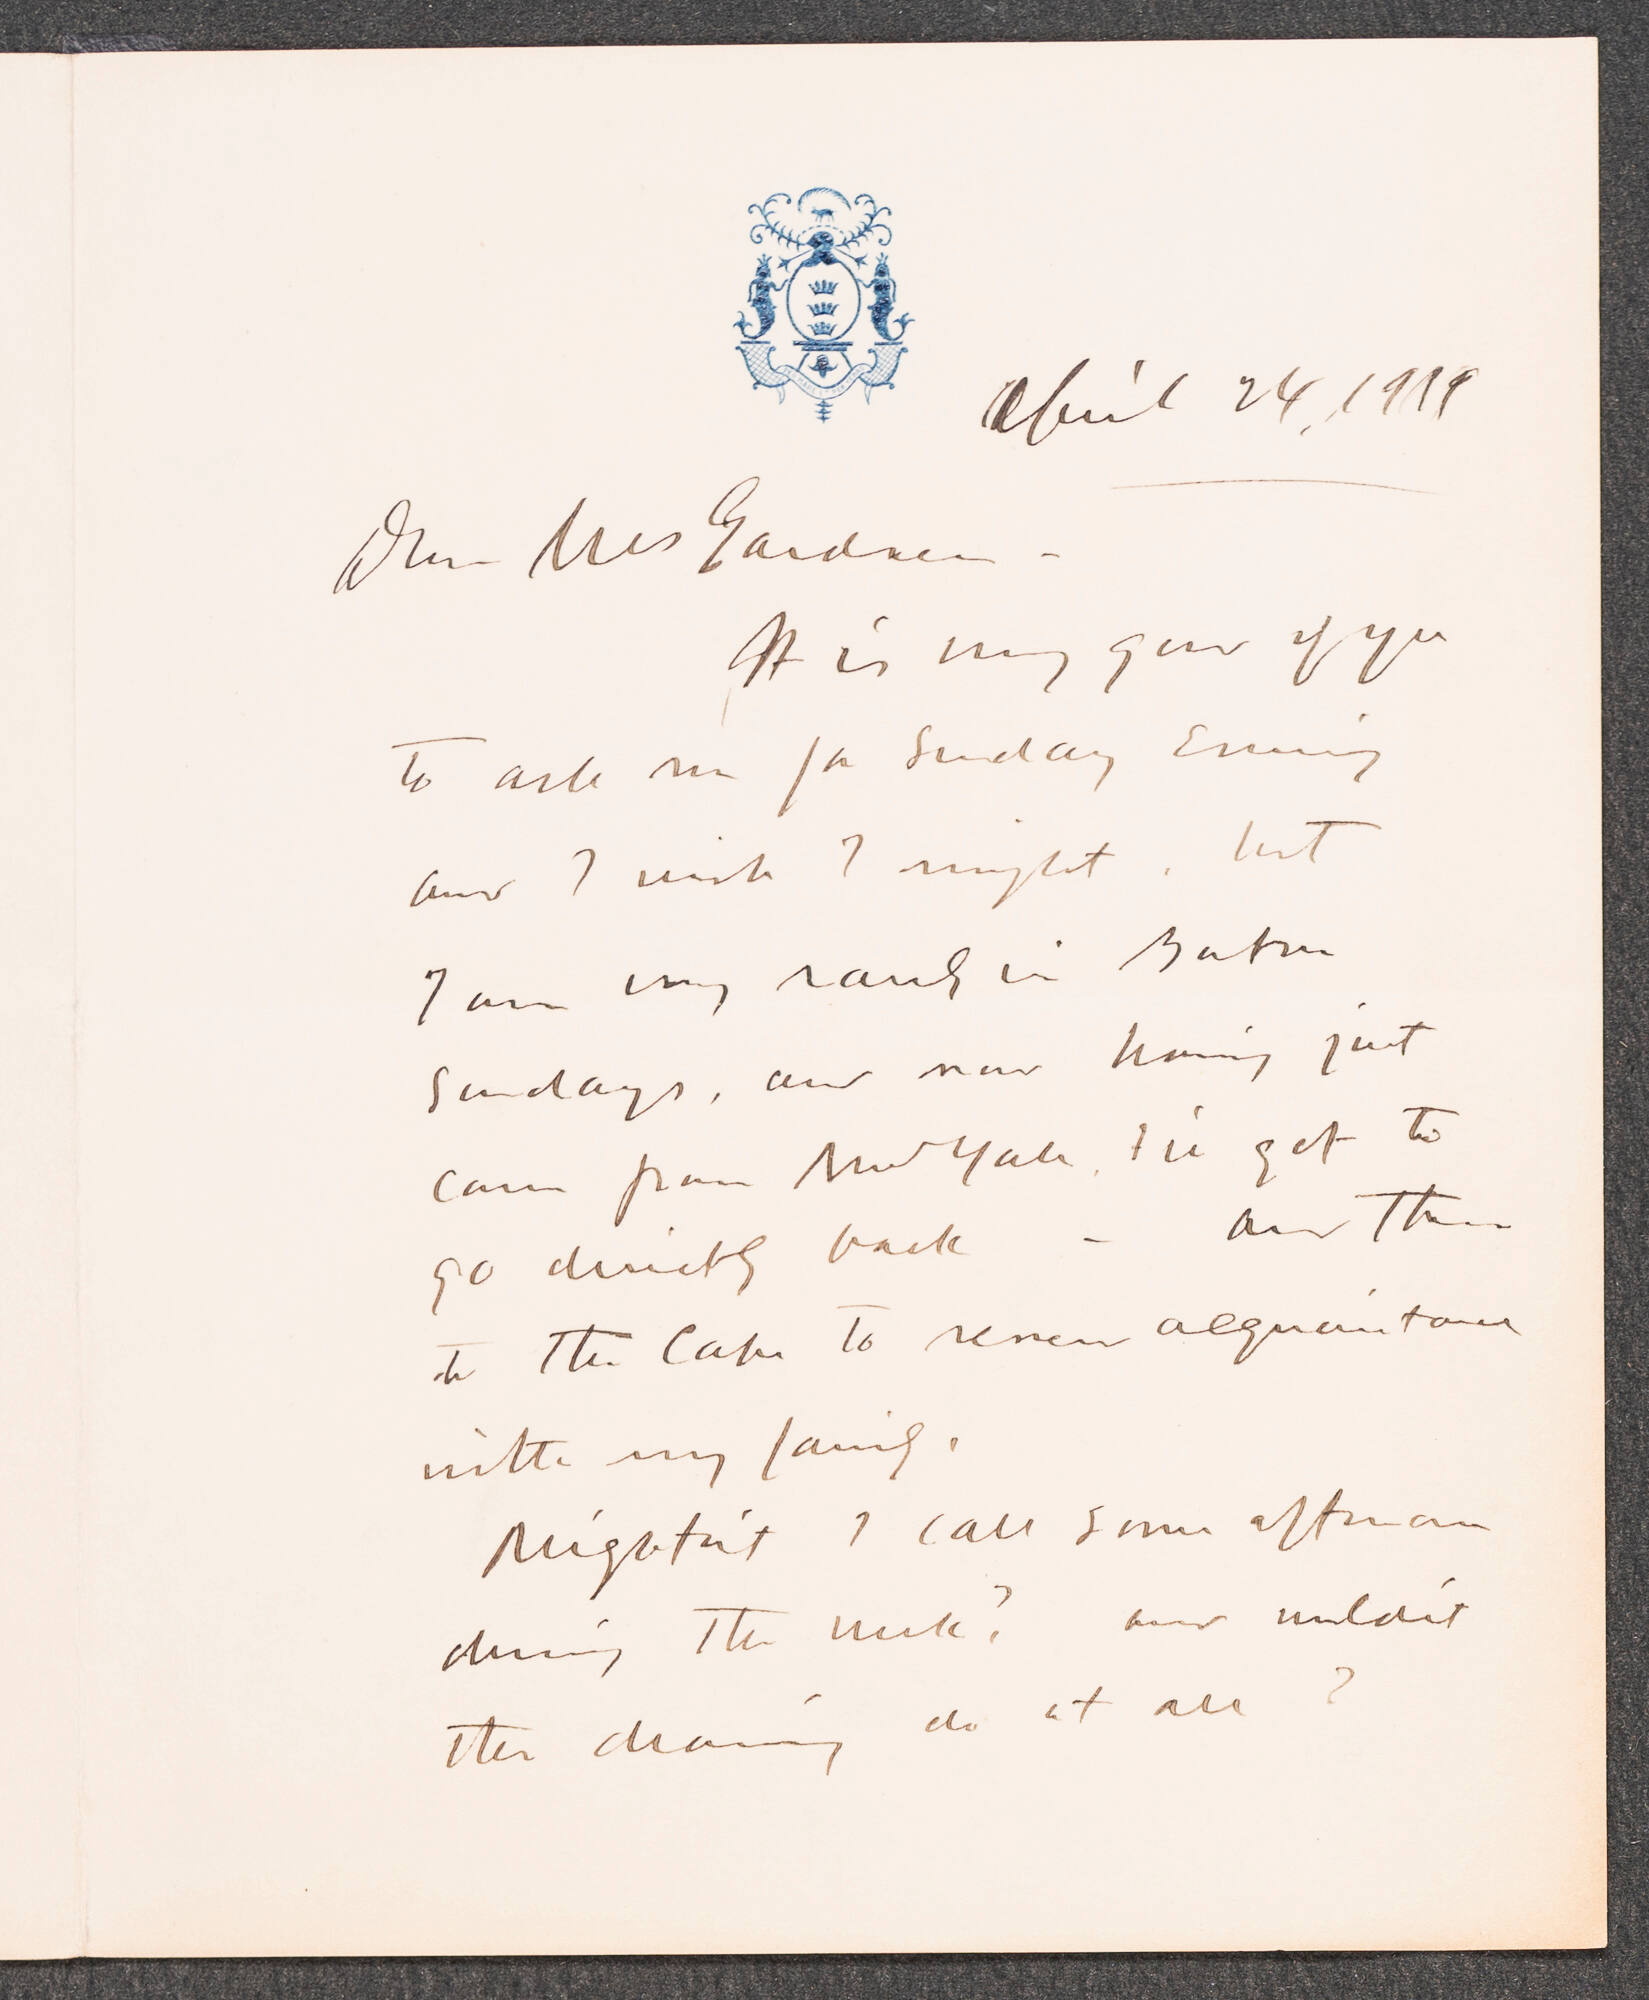 April 24, 1919
Dear Mrs Gardner -
It is very good of you
to ask me for Sunday Evening
and I wish I might, but
I am very rarely in Boston
Sundays, and now having just
come from New York, I've got to
go directly back - and then
to the Cape to renew acquaintance
with my family.
Mightn't I call some afternoon
during the week? and wouldn't
the drawing do at all?